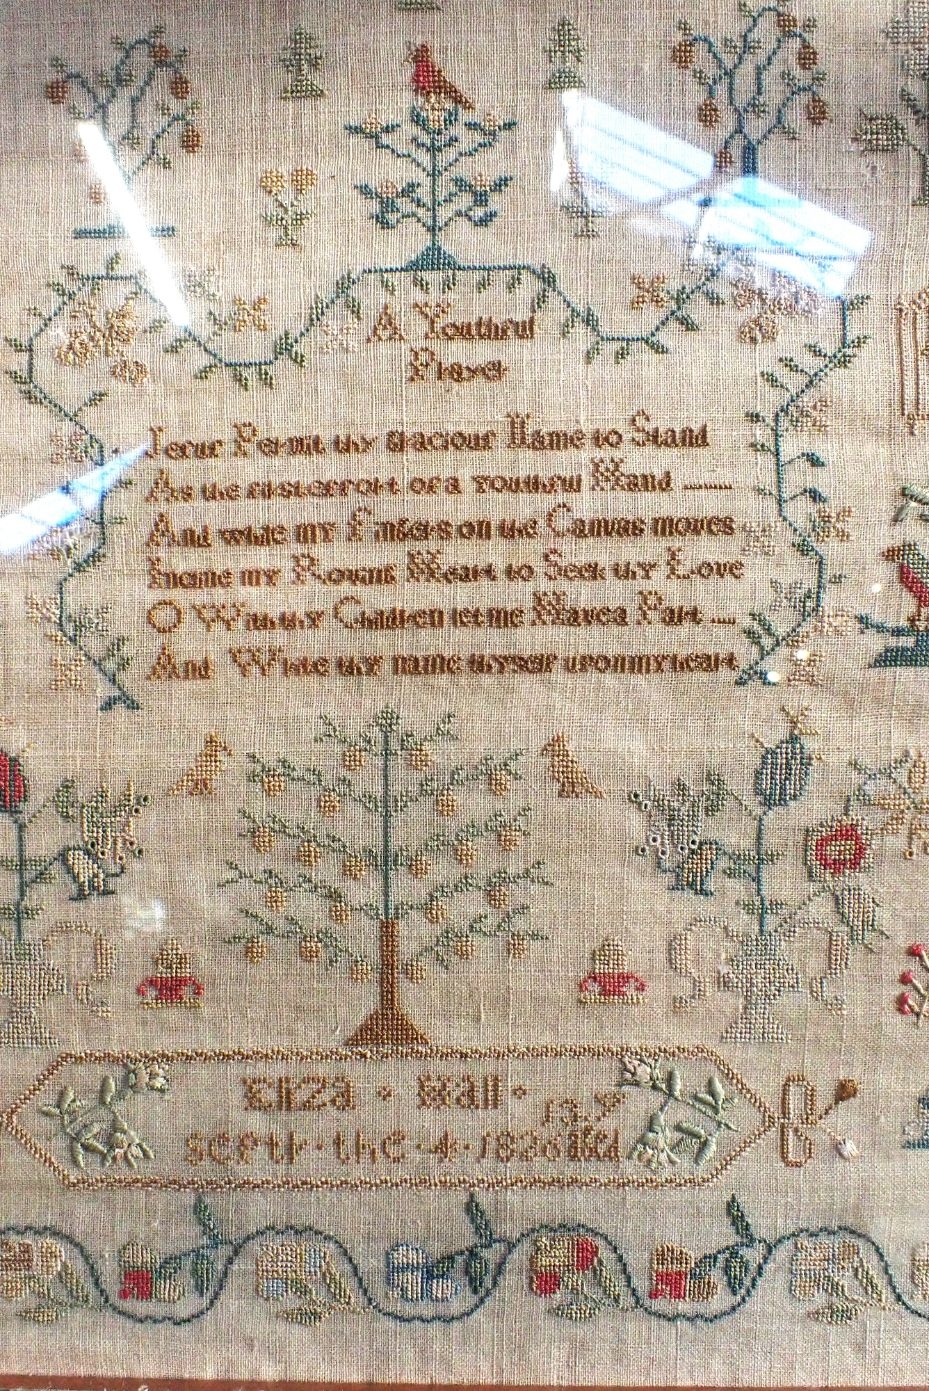 A Youthful
Prayer
Jesus Permit thy Gracious Name to Stand
As the first effort of a youthful Hand
And while my Fingers on the Canvas moves
Incline my Roving Heart to Seek thy Love
O With thy Children let me Have a Part
And Write thy name thyself upon my heart
Eliza Wall
Septr the 4 1826 Aged